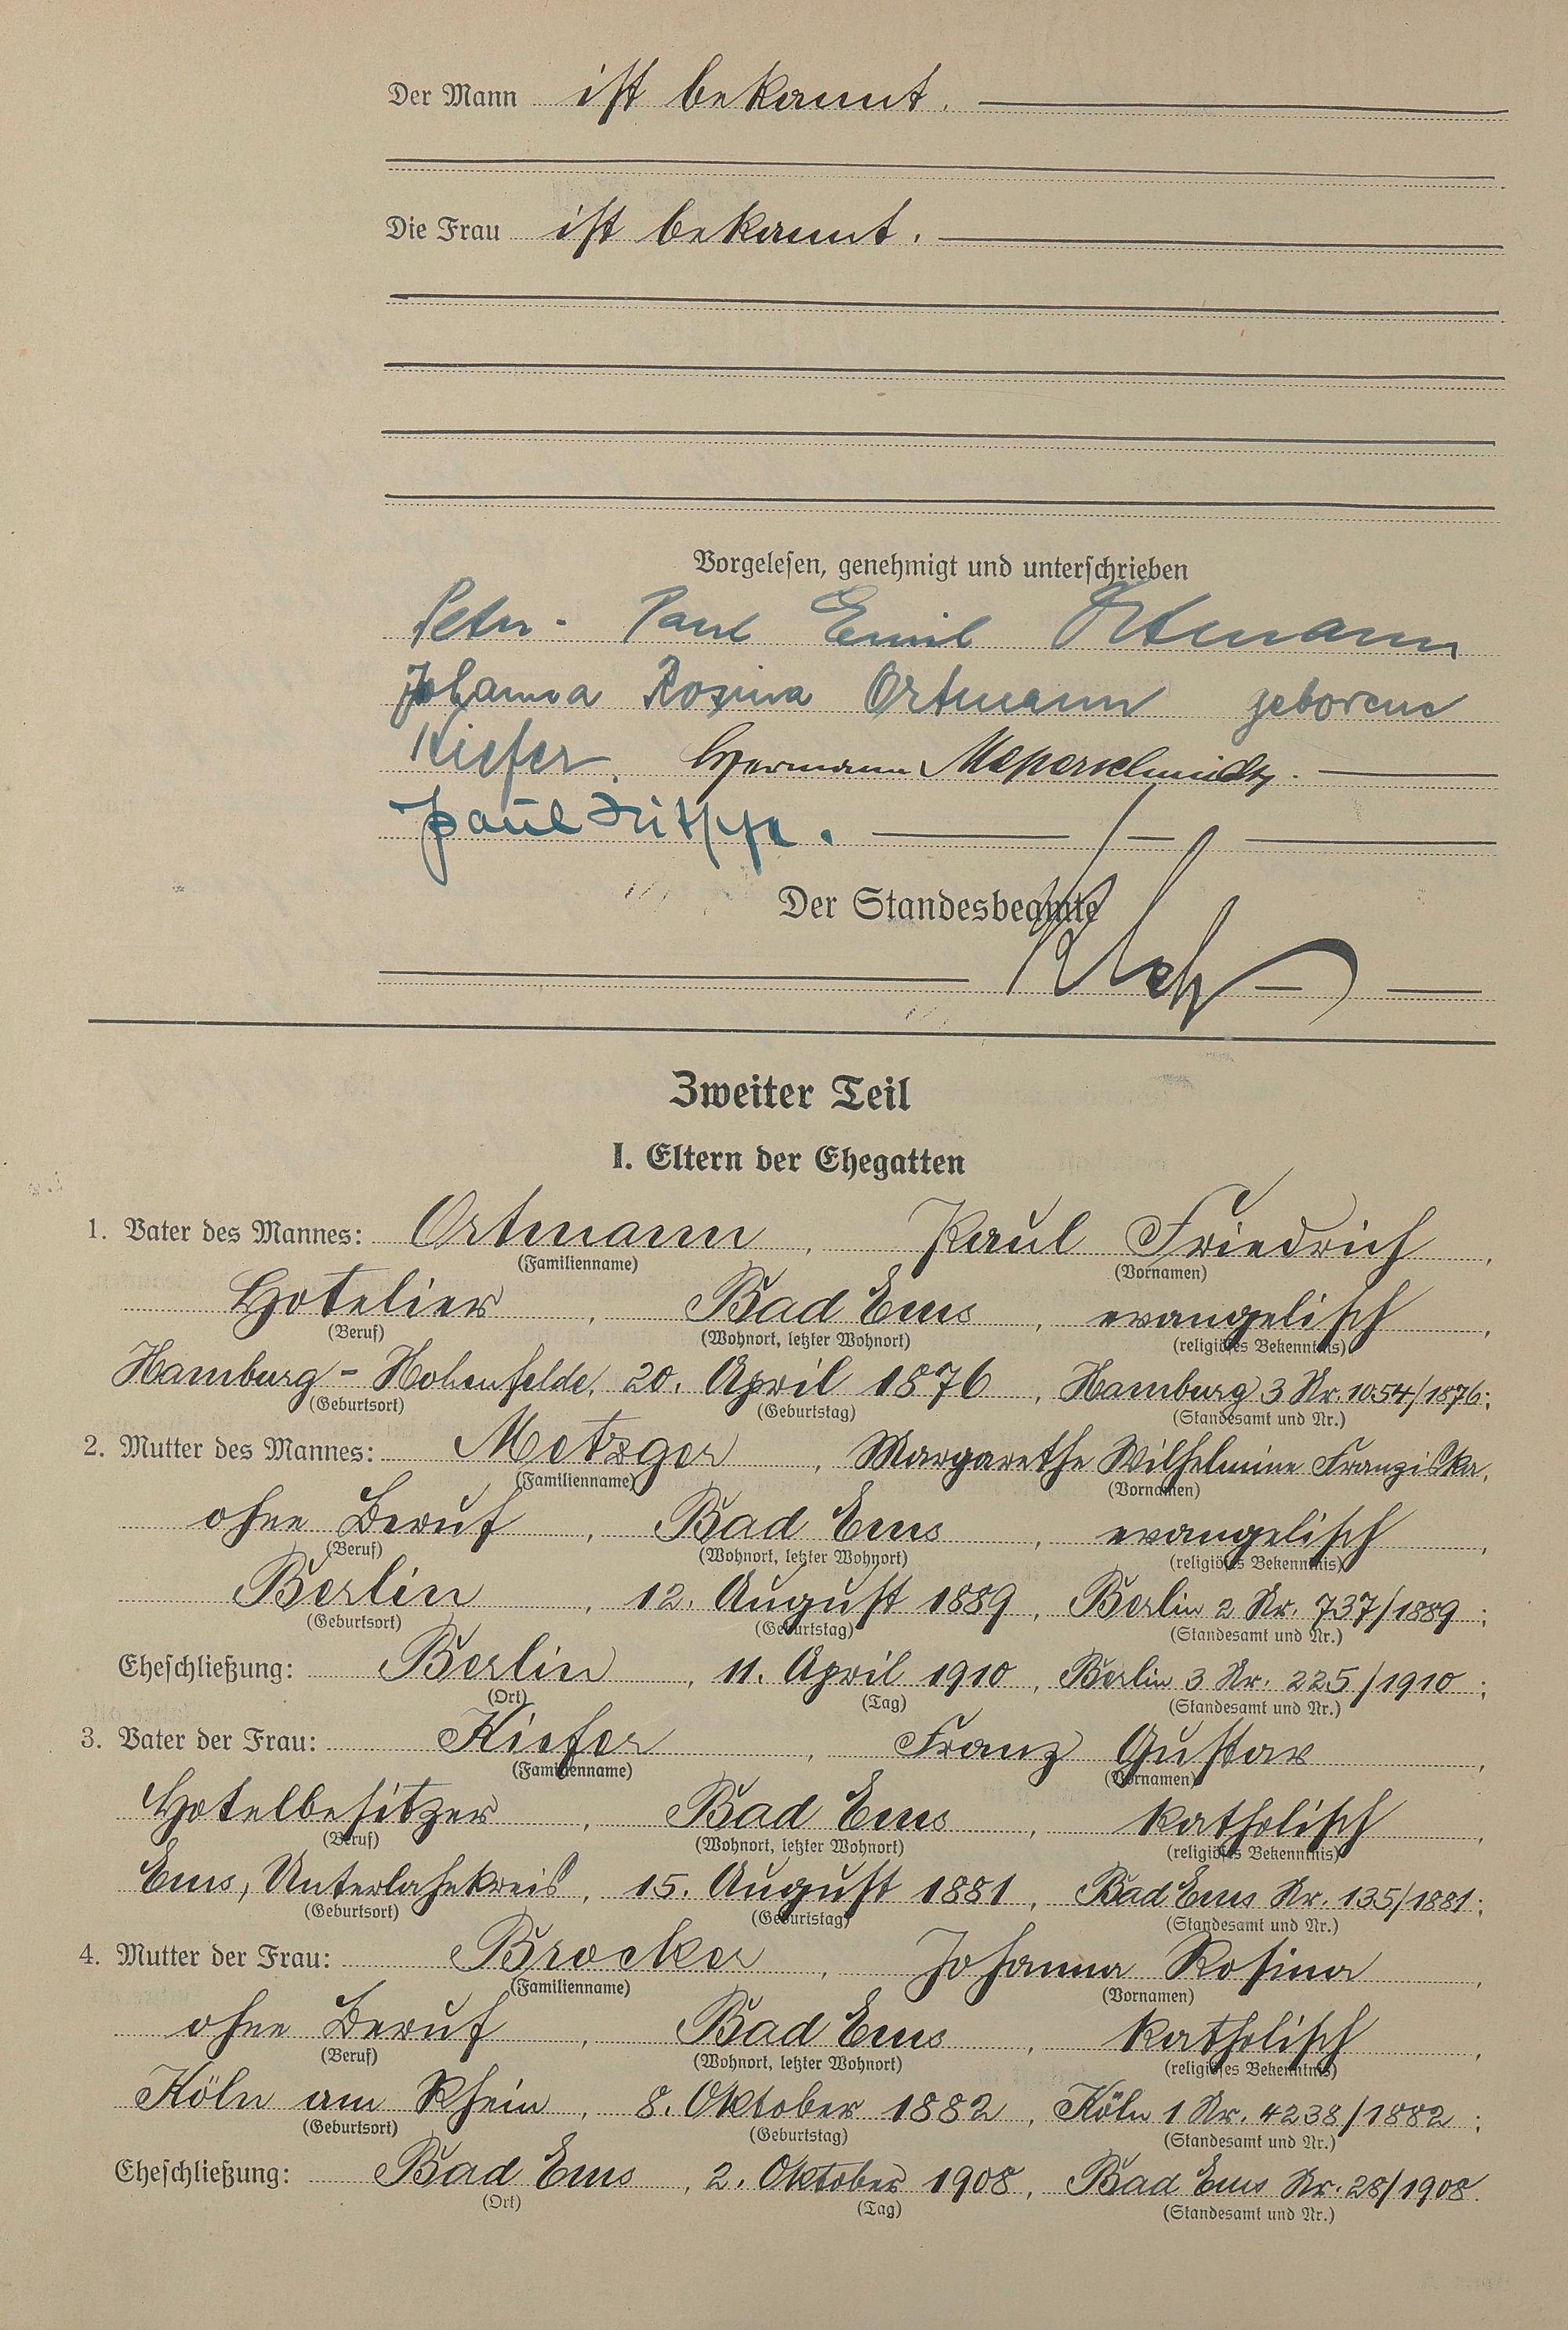 Der Mann ist bekannt.
Die Frau ist bekannt.
Vorgelesen, genehmigt und unterschrieben
Peter-Paul Emil Ortmann
Johanna Rosina Ortmann geborene
Kiefer. Hermann
Paul
Der Standesbeamte
Zweiter Teil
I. Eltern der Ehegatten
1. Vater des Mannes: Ortmann, Paul Friedrich,
(Familienname) (Vornamen)
Hotelier, Bad Ems, evangelisch,
(Beruf) (Wohnort, letzter Wohnort) (religiöses Bekenntnis)
Hamburg-Hohenfelde, 20. April 1876, Hamburg 3 Nr. 1054/1876;
(Geburtsort) (Geburtstag) (Standesamt und Nr.)
2. Mutter des Mannes: Metzger, Margarethe Wilhelmine Franziska,
(Familienname) (Vornamen)
ohne Beruf, Bad Ems, evangelisch,
(Beruf) (Wohnort, letzter Wohnort) (religiöses Bekenntnis)
Berlin, 12. August 1889, Berlin 2 Nr. 737/1889;
(Geburtsort) (Geburtstag) (Standesamt und Nr.)
Eheschließung: Berlin, 11. April 1910, Berlin 3 Nr. 225/1910;
(Ort) (Tag) (Standesamt und Nr.)
3. Vater der Frau: Kiefer, Franz Gustav,
(Familienname) (Vornamen)
Hotelbesitzer, Bad Ems, katholisch,
(Beruf) (Wohnort, letzter Wohnort) (religiöses Bekenntnis)
Ems, Unterlahnkreis, 15. August 1881, Bad Ems Nr. 135/1881;
(Geburtsort) (Geburtstag) (Standesamt und Nr.)
4. Mutter der Frau: Brocker, Johanna Rosina,
(Familienname) (Vornamen)
ohne Beruf, Bad Ems, katholisch,
(Beruf) (Wohnort, letzter Wohnort) (religiöses Bekenntnis)
Köln am Rhein, 8. Oktober 1882, Köln 1 Nr. 4238/1882;
(Geburtsort) (Geburtstag) (Standesamt und Nr.)
Eheschließung: Bad Ems, 2. Oktober 1908, Bad Ems Nr. 28/1908.
(Ort) (Tag) (Standesamt und Nr.)